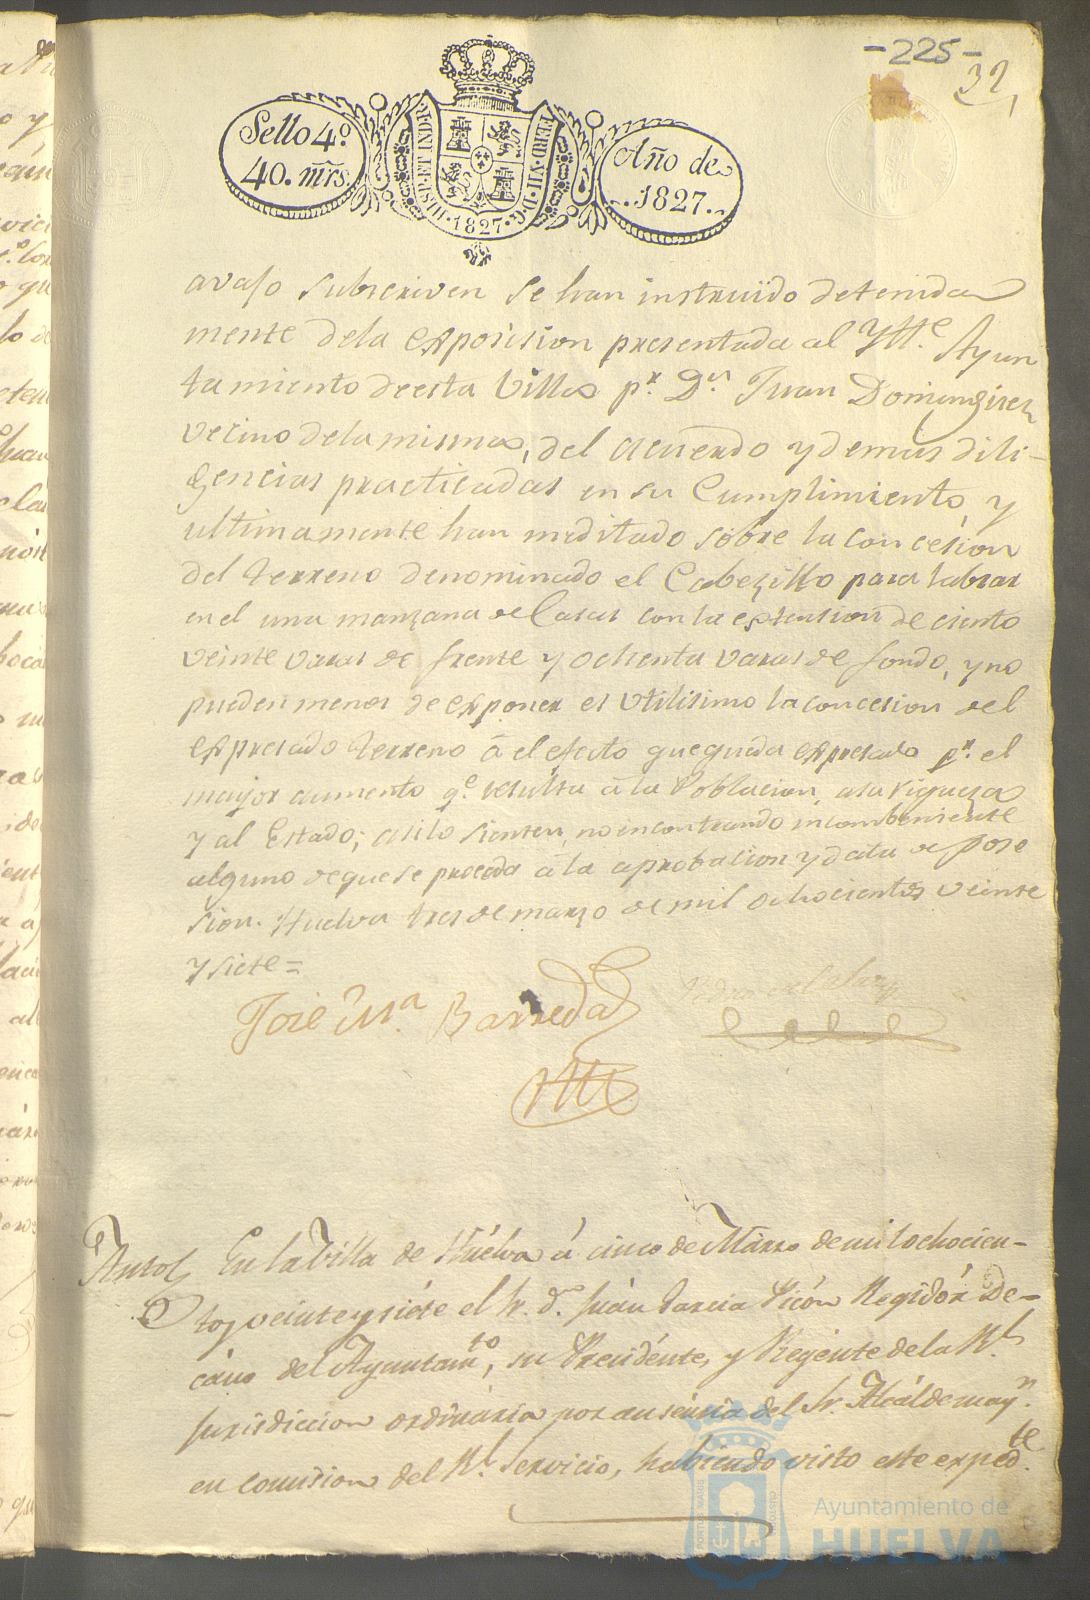 -225-
32,
Sello 4.º
40. mrs.
HISP. ET IND. R. 1827. FERD. VII. D. G.
Año de
1827.
avajo subscriven se han instruido detenida
mente dela exposision presentada al Ylt.e Ayun
tamiento de esta Villa p.r D.n Juan Dominguez
vecino dela misma, del acuerdo y demas dili-
gencias practicadas en su Cumplimiento, y
ultimamente han meditado sobre la concesion
del terreno denominado el Cabezillo para labrar
en el una manzana de Casas con la extension de ciento
veinte varas de frente y ochenta varas de fondo, y no
pueden menos de exponer es utilisimo la concesion del
expresado terreno á el efecto que queda expresado p.r el
mayor aumento q.e resulta á la Poblacion, a su riqueza
y al Estado; asi lo sienten, no encontrando incombeniente
alguno de que se proceda á la aprobacion y data de pose
sion. Huelva tres de marzo de mil ochocientos veinte
y siete=
José M.a Barreda
Auto
En la Villa de Huélva á cinco de Márzo de mil ochocien-
tos veinte y siéte el Sr. d.n Juán Garcia Picón Regidór De-
cáno del Ayuntam.to, su Presidénte, y Regénte de la R.l
jurisdiccion ordinária por auséncia del Sr. Alcálde may.r
en comision del R.l servicio, habiendo visto este exped.te
Ayuntamiento de
HUELVA